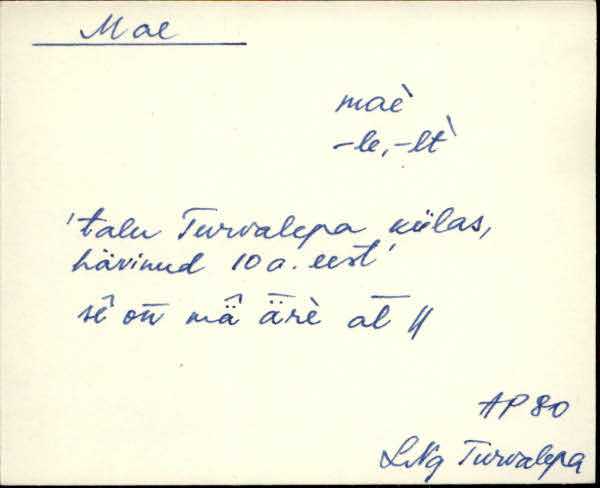 Mae
maè
-le, -lt̀
'talu Turvalepa külas,
hävinud 10 a. eest'
sê on̄ mä̂ ǟrè at̄ //
AP 80
LNg Turvalepa